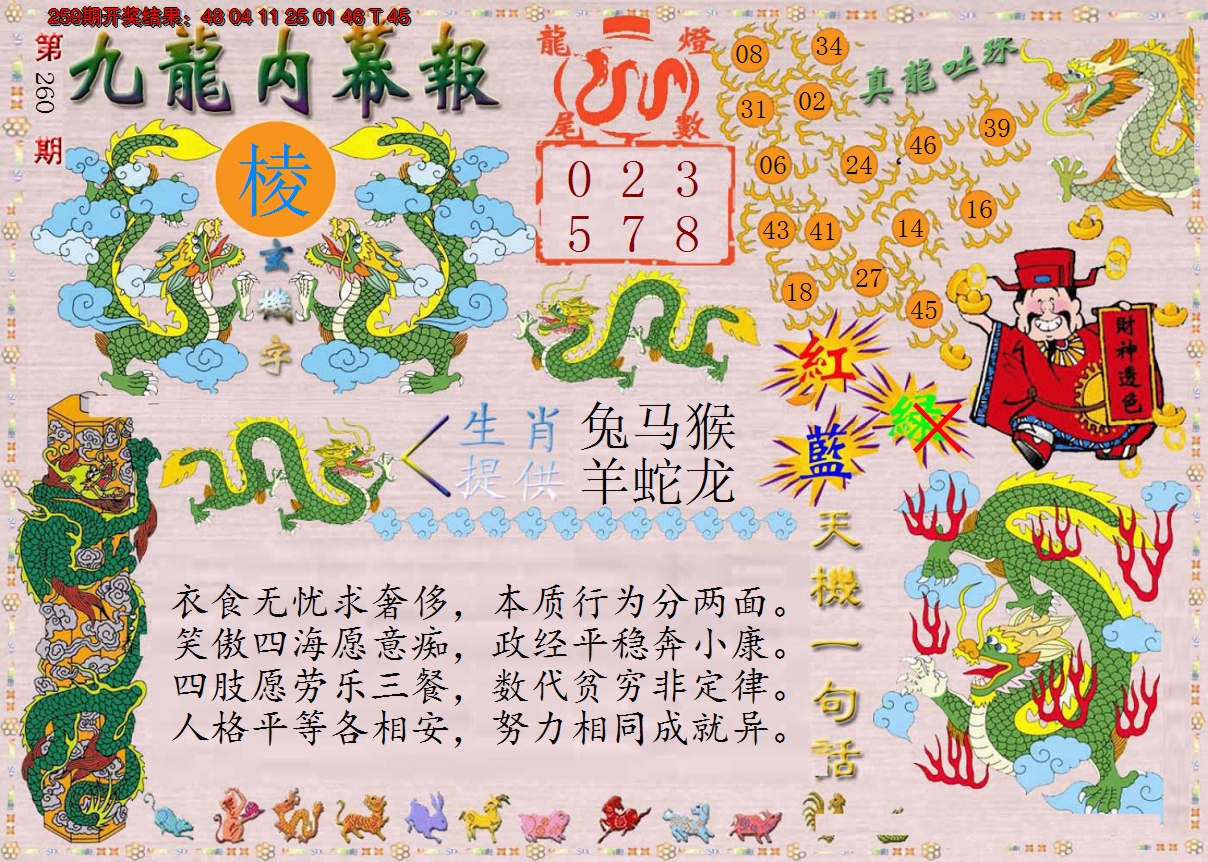 259期开奖结果：48 04 11 25 01 46 T 45
第260期
九龍内幕報
棱
玄機字
龍燈尾數
0 2 3
5 7 8
真龍吐珠
08 34
31 02
06 24 46 39
43 41 14 16
18 27 45
財神透色
紅 綠
藍
生肖 兔马猴
提供 羊蛇龙
天機一句話
衣食无忧求奢侈，本质行为分两面。
笑傲四海愿意痴，政经平稳奔小康。
四肢愿劳乐三餐，数代贫穷非定律。
人格平等各相安，努力相同成就异。